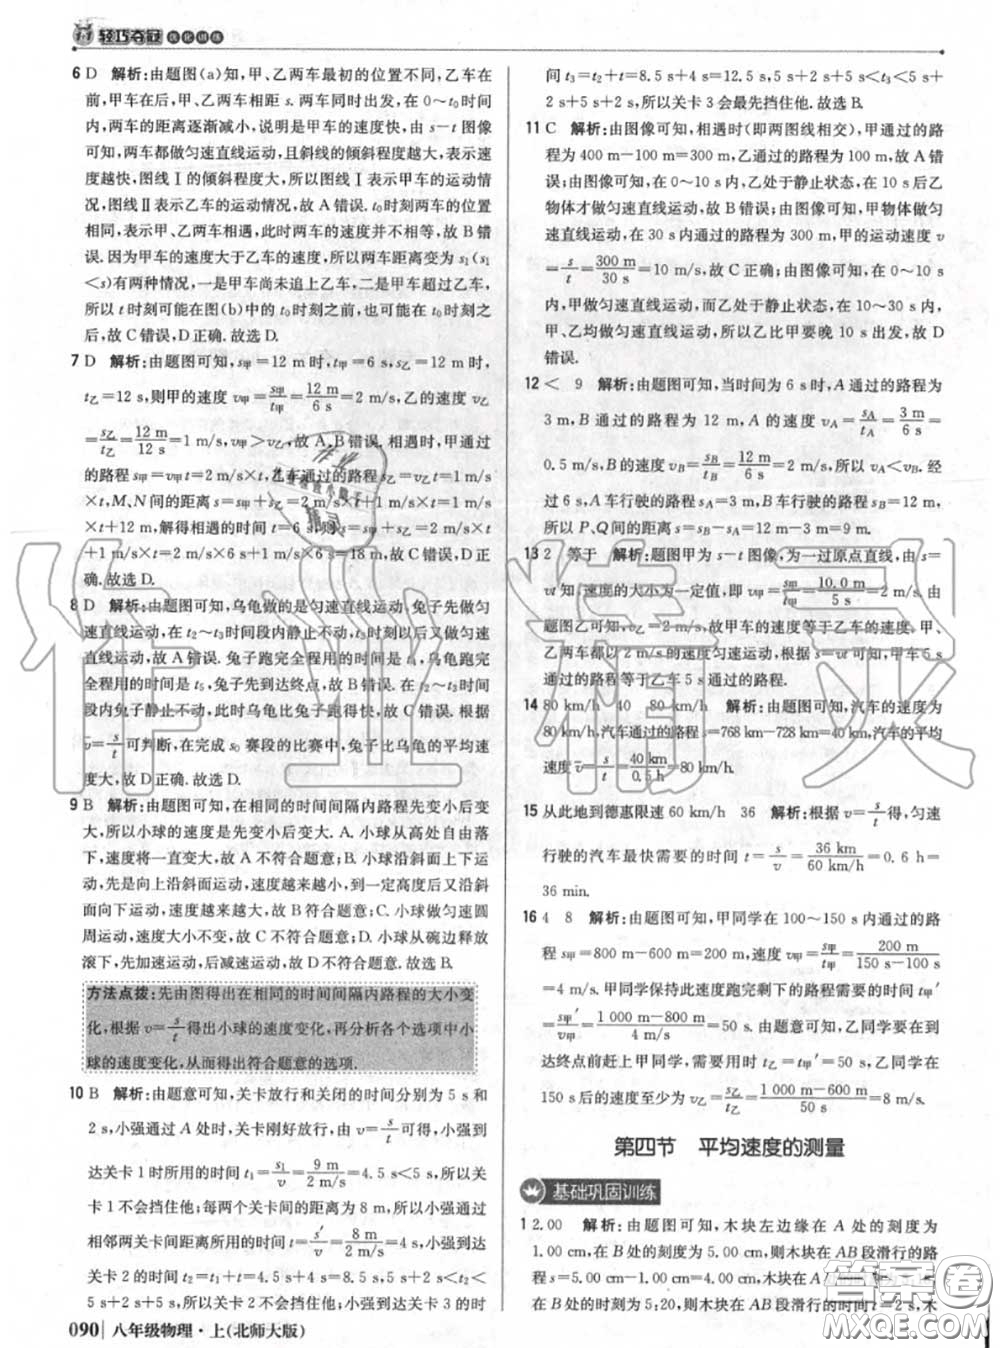 轻巧夺冠 优化训练
6 D 解析:由题图(a)知,甲、乙两车最初的位置不同,乙车在
前,甲车在后,甲、乙两车相距 s. 两车同时出发,在 0～t₀时间
内,两车的距离逐渐减小,说明是甲车的速度快,由 s—t 图像
可知,两车都做匀速直线运动,且斜线的倾斜程度越大,表示
速度越快,图线Ⅰ的倾斜程度大,所以表示甲车的运动情况,
图线Ⅱ表示乙车的运动情况,故 A 错误. t₀时刻两车的位置
相同,表示甲、乙两车相遇,此时两车的速度不相等,故 B 错
误. 因为甲车的速度大于乙车的速度,所以两车相距 s₁(s₁
<s)有两种情况,一是甲车尚未追上乙车,二是甲车已超过乙
车,所以 t 时刻可能在图(b)中的 t₀时刻之前,也可能在 t₀时
刻之后,故 C 错误,D 正确. 故选 D.
7 D 解析:由题图可知,s甲=12 m 时,t甲=6 s,s乙=12 m 时,
t乙=12 s,则甲车的速度 v甲=s甲/t甲=12 m/6 s=2 m/s,乙车的速度 v乙
=s乙/t乙=12 m/12 s=1 m/s,v甲>v乙,故 A、B 错误. 相遇时,甲车通过
的路程 s甲=v甲t=2 m/s×t,乙车通过的路程 s乙=v乙t=1 m/s
×t,M、N 间的距离 s=s甲+s乙=2 m/s×t+1 m/s×t=2 m/s×6 s+1 m/s×
12 m,解得相遇的时间 t=
8 D 解析:由题图可知,乌龟做的是匀速直线运动,兔子先做匀
速直线运动,在 t₂～t₃时间段内静止不动,
动,故 A 错误. 兔子跑完全程用的时间是 t₄,乌龟跑完
全程的时间是 t₅,兔子先到达终点,故 B、C 错误. t₂～t₃时间
段内兔子静止不动,但乌龟比兔子跑得慢,故 C 错误. 根据
v̄=s/t可判断,在完成 s₀ 赛段的比赛中,兔子比乌龟的平均速
度大,故 D 正确. 故选 D.
9 B 解析:由题图可知,在相同的时间间隔内路程先变小后变
大,所以小球的速度是先变小后变大. A. 小球从高处自由落
下,速度将一直变大;故 A 不符合题意;B. 小球沿斜面上下运
动,向上沿斜面运动,速度越来越小,到达最高点后,又沿斜
面向下运动,速度越来越大,故 B 符合题意;C. 小球做匀速圆
周运动,速度大小不变,故 C 不符合题意;D. 小球从碗边释放
滚下,先加速运动,后减速运动,故 D 不符合题意. 故选 B.
方法点拨:先由图得出在相同的时间间隔内路程的大小变
化,根据 v=s/t得出小球的速度变化,再分析各个选项中小
球的速度变化,从而得出符合题意的选项.
10 B 解析:由题意可知,关卡放行和关闭的时间分别为 5 s 和
2 s,小强通过 A 处时,关卡刚好放行,由 v=s/t可得,小强到
达关卡 1 时所用的时间 t₁=s₁/v=9 m/2 m/s=4.5 s<5 s,所以关卡
1 不会挡住他;每两个关卡之间的距离都相等,所以小强经过
相邻两关卡间的时间 t=s/v=8 m/2 m/s=4 s,小强到达关卡 2 的
时间 t₂=t₁+t=4.5 s+4 s=8.5 s,5 s+2 s<t₂<5 s+
2 s+5 s,所以关卡 2 不会挡住他;同理小强到达关卡 3 的时
间 t₃=t₂+t=8.5 s+4 s=12.5 s,5 s+2 s+5 s<t₃<5 s+
2 s+5 s+2 s,所以关卡 3 会最先挡住他. 故选 B.
11 C 解析:由图像可知,相遇时(即两图线相交),甲通过的路
程为 400 m－100 m=300 m,乙通过的路程为 100 m,故 A 错
误;由图像可知,在前 10 s,乙处于静止状态,在 10 s 后乙
物体才做匀速直线运动,故 B 错误;由图像可知,甲物体做匀
速直线运动,在 30 s 内通过的路程为 300 m,甲的运动速度 v
=s/t=300 m/30 s=10 m/s,故 C 正确;由图像可知,在 0～10 s
内,甲做匀速直线运动,而乙处于静止状态,在 10 s 后,
甲、乙均做匀速直线运动,所以乙比甲要晚 10 s 出发,故 D
错误.
12 < 9 解析:由题图可知,当时间为 6 s 时,A 通过的路程为
3 m,B 通过的路程为 12 m,A 的速度 vA=sA/tA=3 m/6 s=
0.5 m/s,B 的速度 vB=sB/tB=12 m/6 s=2 m/s,所以 vA<vB. 经
过 6 s,A 车行驶的路程 sA=3 m,B 车行驶的路程 sB=12 m,
所以 P、Q 间的距离 s=sB－sA=12 m－3 m=9 m.
13 2 等于 解析:题图甲为 s－t 图像,为一过原点直线,由 s=
vt 知,速度的大小为一定值,即 v甲=s甲/t甲=10.0 m/5 s=2 m/s,由
题图乙可知,v乙=2 m/s,故甲车的速度等于乙车的速度,甲、
乙都以 2 m/s 的速度做匀速运动,由 s=vt 可知,甲车 5 s 通过
的路程等于乙车 5 s 通过的路程.
14 80 km/h 40 80 km/h 解析:由题图可知,汽车的速度为
80 km/h,汽车通过的路程 s=768 km－728 km=40 km,汽车的平均
速度 v̄=s/t=40 km/0.5 h=80 km/h.
15 从此地到德惠限速 60 km/h 36 解析:根据 v=s/t得,匀速
行驶的汽车最快需要的时间 t=s/v=36 km/60 km/h=0.6 h=
36 min.
16 4 8 解析:由题图可知,甲同学在 100～150 s内通过的路
程 s甲=800 m－600 m=200 m,速度 v甲=s甲/t甲=200 m/50 s
=4 m/s. 甲同学保持此速度跑完剩下的路程,所需时间 t甲′=
s甲′/v甲=1 000 m－800 m/4 m/s=50 s,由题意可知,乙同学要在到
达终点前赶上甲同学,需要的时间 t乙=t甲′=50 s,所以乙在
150 s 后的速度至少为 v乙=s乙/t乙=1 000 m－600 m/50 s=8 m/s.
第四节 平均速度的测量
基础巩固训练
1 2.00 解析:由题图可知,木块左边缘在 A 处的刻度为
1.00 cm,在 B 处的刻度为 5.00 cm,则木块在 AB 段滑行的路
程 s=5.00 cm－1.00 cm=4.00 cm,木块在 A
处的时间 在 B 处的时间为 5:20,则木块在 AB 段滑行
090 八年级物理·上(北师大版)
作业精灵
答案卷